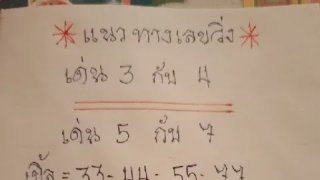 แนวทางเลขวิ่ง
เด่น 3 กับ 4
เด่น 5 กับ 7
เบิ้ล = 33- 44- 55- 77